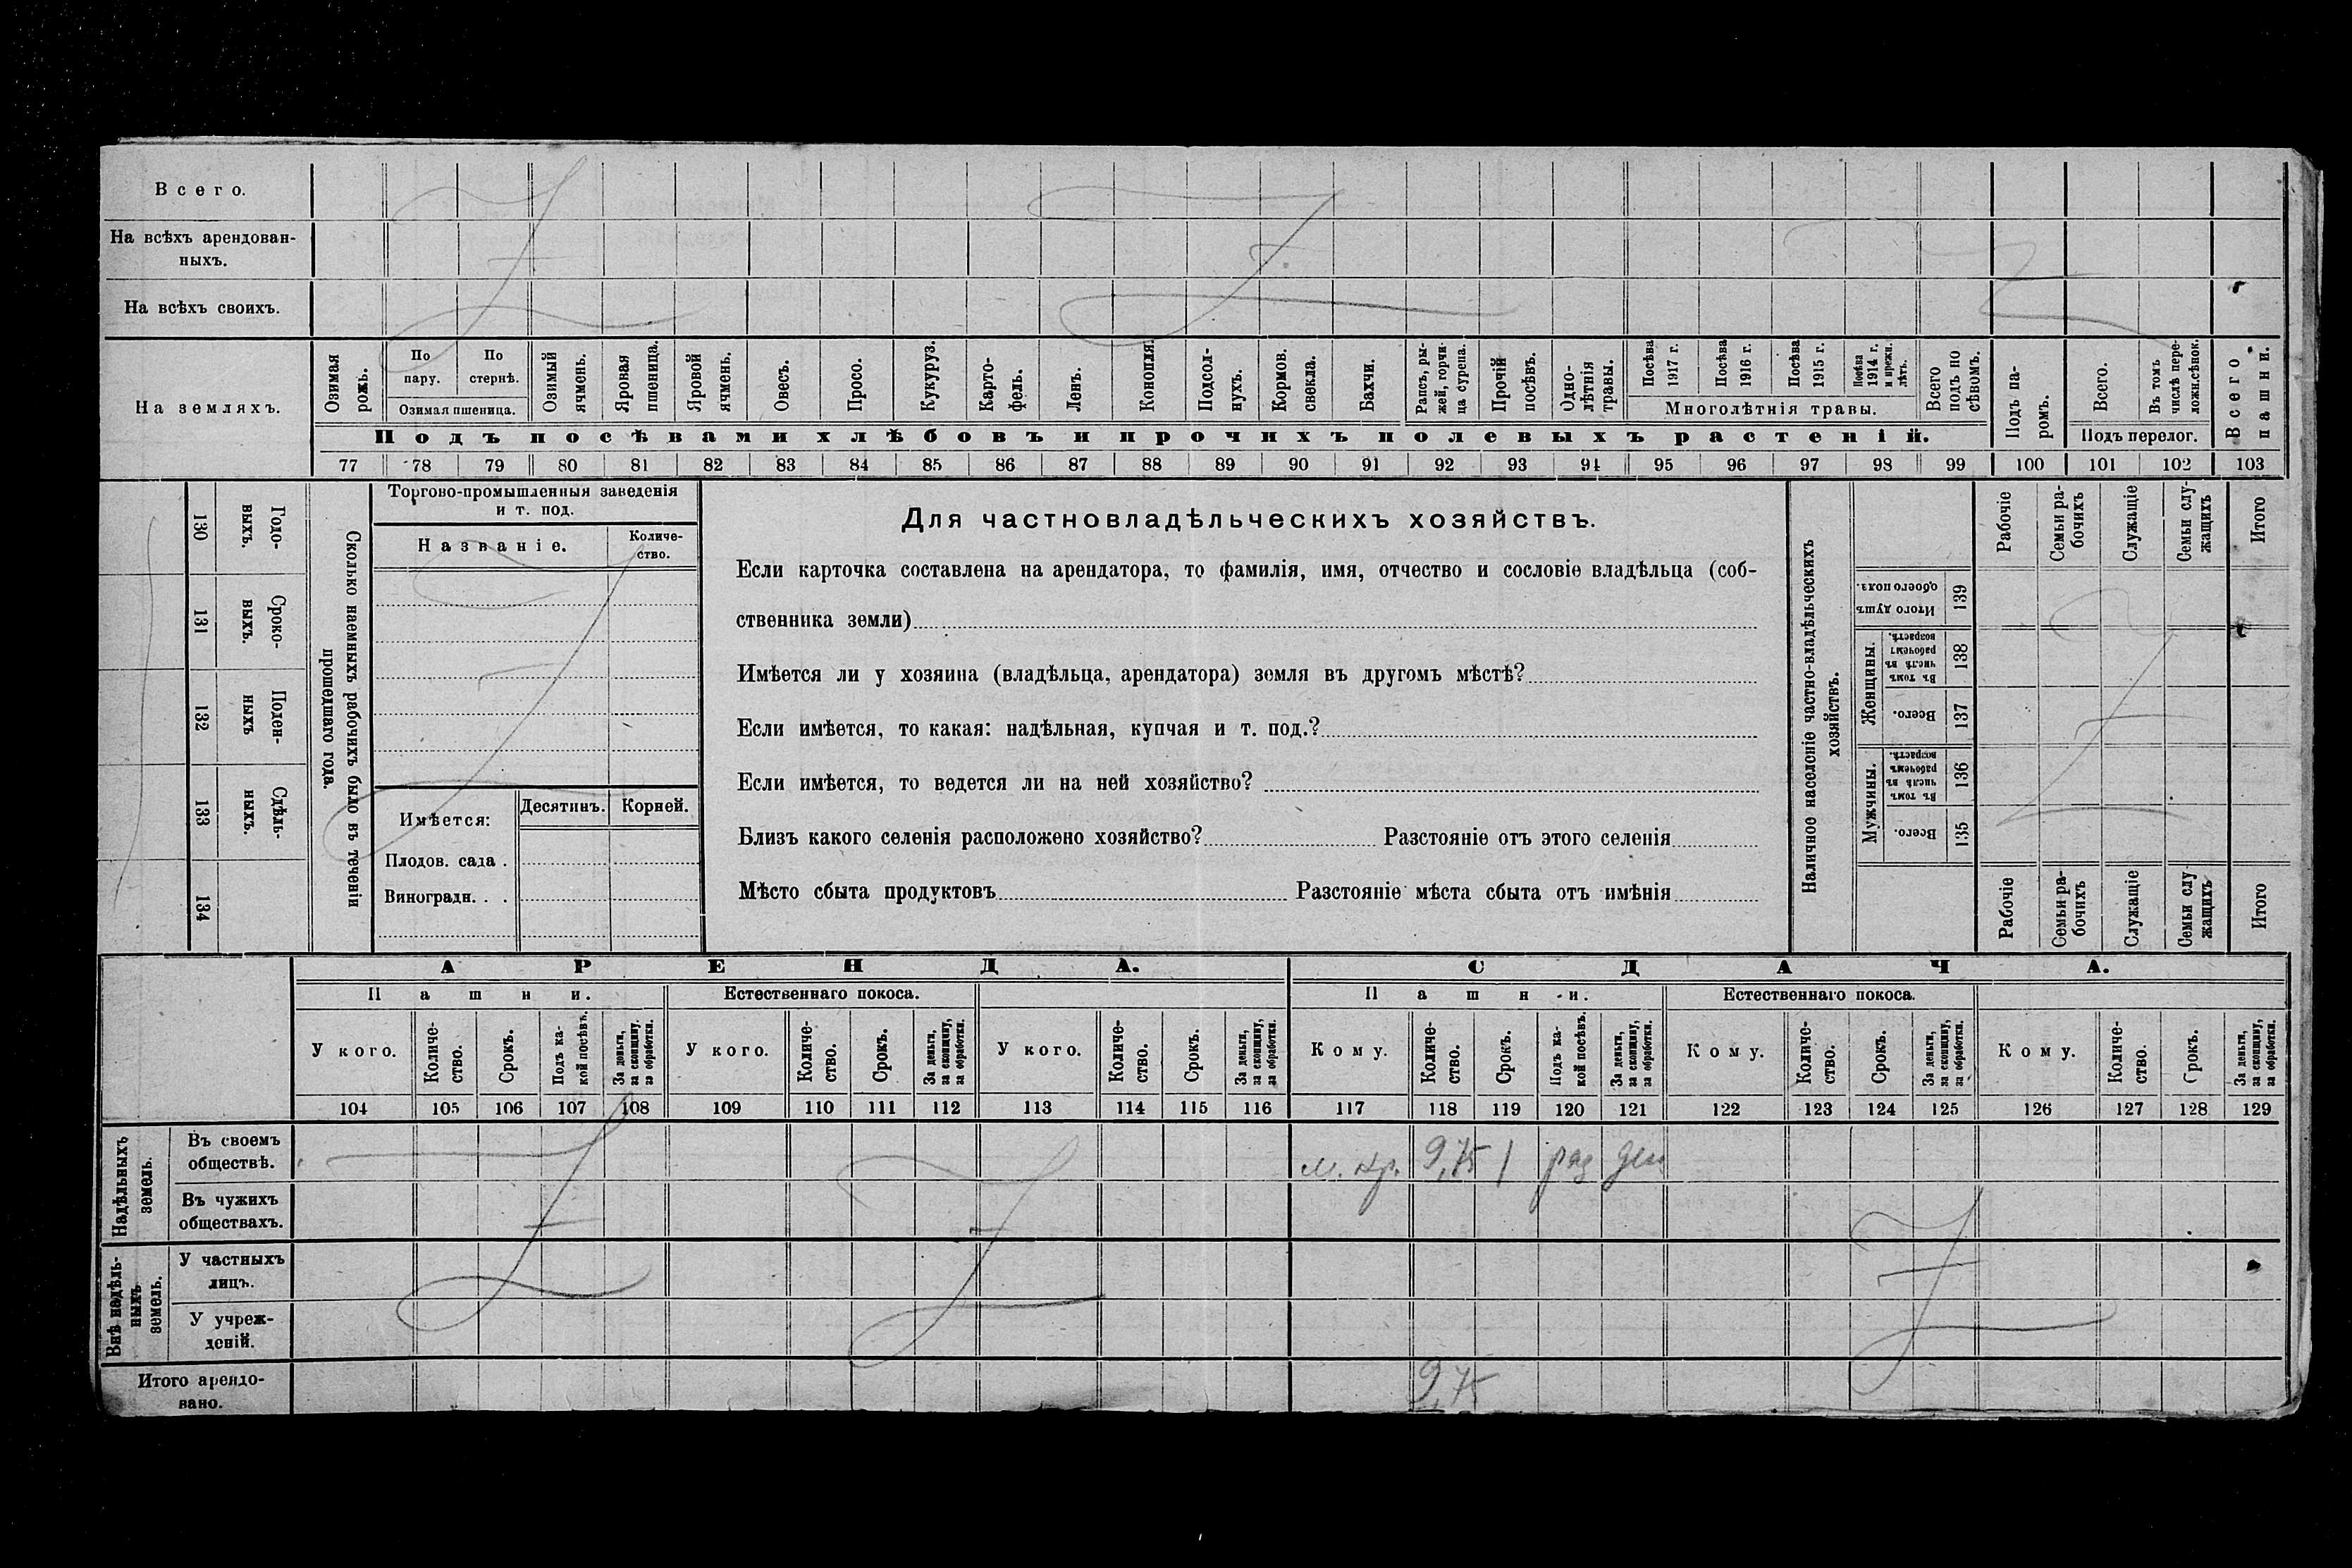 Всего.
На всѣхъ арендован-
ныхъ.
На всѣхъ своихъ.
На земляхъ.
Озимая рожь.
По пару.
По стернѣ.
Озимая пшеница.
Озимый ячмень.
Яровая пшеница.
Яровой ячмень.
Овесъ.
Просо.
Кукуруз.
Карто-
фель.
Ленъ.
Конопля.
Подсол-
нухъ.
Кормов. свекла.
Бахчи.
Рапсъ, ры-
жей, горчи-
ца сурепа.
Прочій посѣвъ.
Одно-
лѣтнія травы.
Посѣва 1917 г.
Посѣва 1916 г.
Посѣва 1915 г.
Посѣва 1914 г. и прежн. лѣтъ.
Многолѣтнія травы.
Всего подъ по
сѣвомъ.
Подъ па-
ромъ.
Всего.
Въ томъ числѣ пере-
ложн.сѣнок.
Подъ перелог.
Всего пашни.
Подъ посѣвами хлѣбовъ и прочихъ полевыхъ растеній.
77 78 79 80 81 82 83 84 85 86 87 88 89 90 91 92 93 94 95 96 97 98 99 100 101 102 103
130 Годо-
выхъ.
131 Сроко-
выхъ.
132 Поден-
ныхъ
133 Сдѣль-
ныхъ.
134
Сколько наемныхъ рабочихъ было въ теченіи
прошедшаго года.
Торгово-промышленныя заведенія
и т. под.
Названіе.
Количе-
ство.
Имѣется:
Десятинъ.
Корней.
Плодов. сада .
Виноградн. . .
Для частновладѣльческихъ хозяйствъ.
Если карточка составлена на арендатора, то фамилія, имя, отчество и сословіе владѣльца (соб-
ственника земли)
Имѣется ли у хозяина (владѣльца, арендатора) земля въ другомъ мѣстѣ?
Если имѣется, то какая: надѣльная, купчая и т. под.?
Если имѣется, то ведется ли на ней хозяйство?
Близъ какого селенія расположено хозяйство? Разстояніе отъ этого селенія
Мѣсто сбыта продуктовъ Разстояніе мѣста сбыта отъ имѣнія
Наличное населеніе частно-владѣльческихъ
хозяйствъ.
Рабочіе
Семьи ра-
бочихъ
Служащіе
Семьи слу-
жащихъ
Итого
Итого душъ обоего пола.
139
Женщины.
Въ томъ числѣ въ рабочемъ возрастѣ.
138
Всего.
137
Мужчины.
Въ томъ числѣ въ рабочемъ возрастѣ.
136
Всего.
135
Рабочіе
Семьи ра-
бочихъ
Служащіе
Семьи слу
жащихъ
Итого
АРЕНДА.
СДАЧА.
Пашни.
Естественнаго покоса.
Пашни.
Естественнаго покоса.
У кого.
Количе-
ство.
Срокъ.
Подъ ка-
кой посѣвъ.
За деньги, за скопщину, за обработки.
У кого.
Количе-
ство.
Срокъ.
За деньги, за скопщину, за обработки.
У кого.
Количе-
ство.
Срокъ.
За деньги, за скопщину, за обработки.
Кому.
Количе-
ство.
Срокъ.
Подъ ка-
кой посѣвъ.
За деньги, за скопщину, за обработки.
Кому.
Количе-
ство.
Срокъ.
За деньги, за скопщину, за обработки.
Кому.
Количе-
ство.
Срокъ.
За деньги, за скопщину, за обработки.
104 105 106 107 108 109 110 111 112 113 114 115 116 117 118 119 120 121 122 123 124 125 126 127 128 129
Надѣльныхъ земель.
Въ своемъ
обществѣ.
м. кр. 9,75 1 раз ден
Въ чужихъ
обществахъ.
Внѣ надѣль-
ныхъ земель.
У частныхъ
лицъ.
У учреж-
деній.
Итого арендо-
вано.
9,75